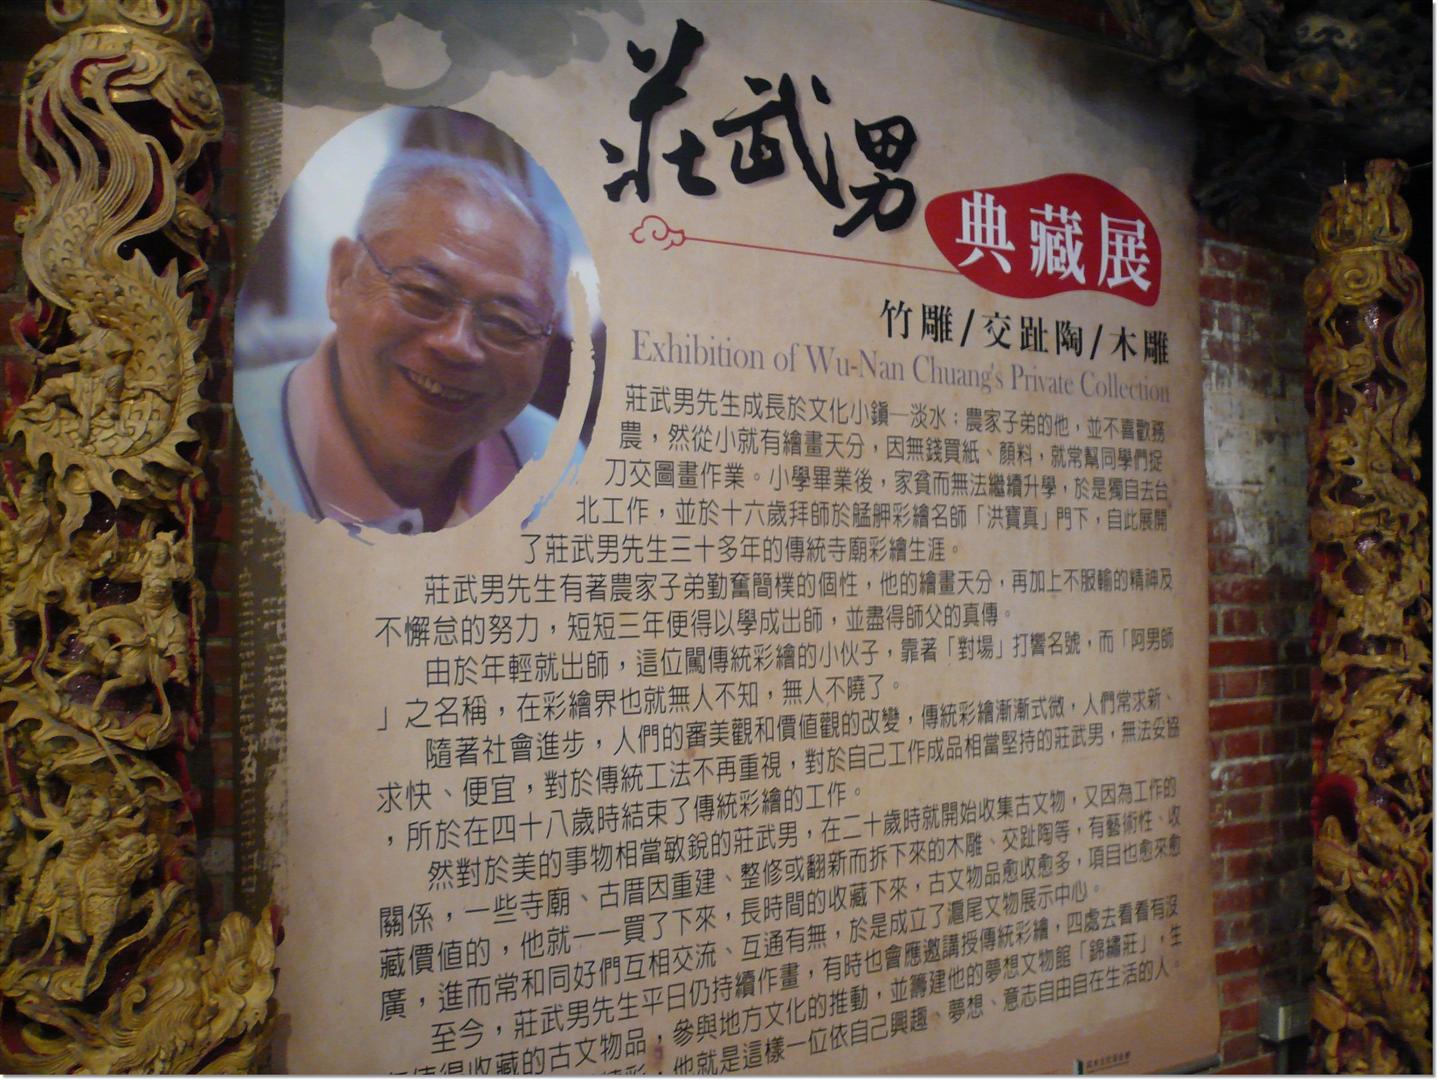 莊武男
典藏展
竹雕/交趾陶/木雕
Exhibition of Wu-Nan Chuang's Private Collection
莊武男先生成長於文化小鎮─淡水；農家子弟的他，並不喜歡務
農，然從小就有繪畫天分，因無錢買紙、顏料，就常幫同學們捉
刀交圖畫作業。小學畢業後，家貧而無法繼續升學，於是獨自去台
北工作，並於十六歲拜師於艋舺彩繪名師「洪寶真」門下，自此展開
了莊武男先生三十多年的傳統寺廟彩繪生涯。
莊武男先生有著農家子弟勤奮簡樸的個性，他的繪畫天分，再加上不服輸的精神及
不懈怠的努力，短短三年便得以學成出師，並盡得師父的真傳。
由於年輕就出師，這位闖傳統彩繪的小伙子，靠著「對場」打響名號，而「阿男師
」之名稱，在彩繪界也就無人不知，無人不曉了。
隨著社會進步，人們的審美觀和價值觀的改變，傳統彩繪漸漸式微，人們常求新、
求快、便宜，對於傳統工法不再重視，對於自己工作成品相當堅持的莊武男，無法妥協
，所於在四十八歲時結束了傳統彩繪的工作。
然對於美的事物相當敏銳的莊武男，在二十歲時就開始收集古文物，又因為工作的
關係，一些寺廟、古厝因重建、整修或翻新而拆下來的木雕、交趾陶等，有藝術性、收
藏價值的，他就一一買了下來，長時間的收藏下來，古文物品愈收愈多，項目也愈來愈
廣，進而常和同好們互相交流、互通有無，於是成立了滬尾文物展示中心。
至今，莊武男先生平日仍持續作畫，有時也會應邀講授傳統彩繪，四處去看看有沒
值得收藏的古文物品，參與地方文化的推動，並籌建他的夢想文物館「錦繡莊」，生
他就是這樣一位依自己興趣、夢想、意志自由自在生活的人。